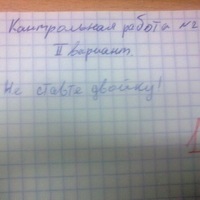 Контрольная работа №2
II вариант
Не ставте двойку!